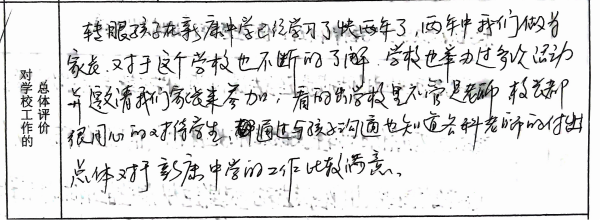 对学校工作的
总体评价
转眼孩子在新康中学已经学习了快两年了，两年中我们做为
家长对于这个学校也不断的了解，学校也举办过多次活动
并邀请我们家长来参加，看的出学校里不管是老师 校长都
很用心的对待学生，通过与孩子沟通也知道各科老师的付出
总体对于新康中学的工作比较满意。